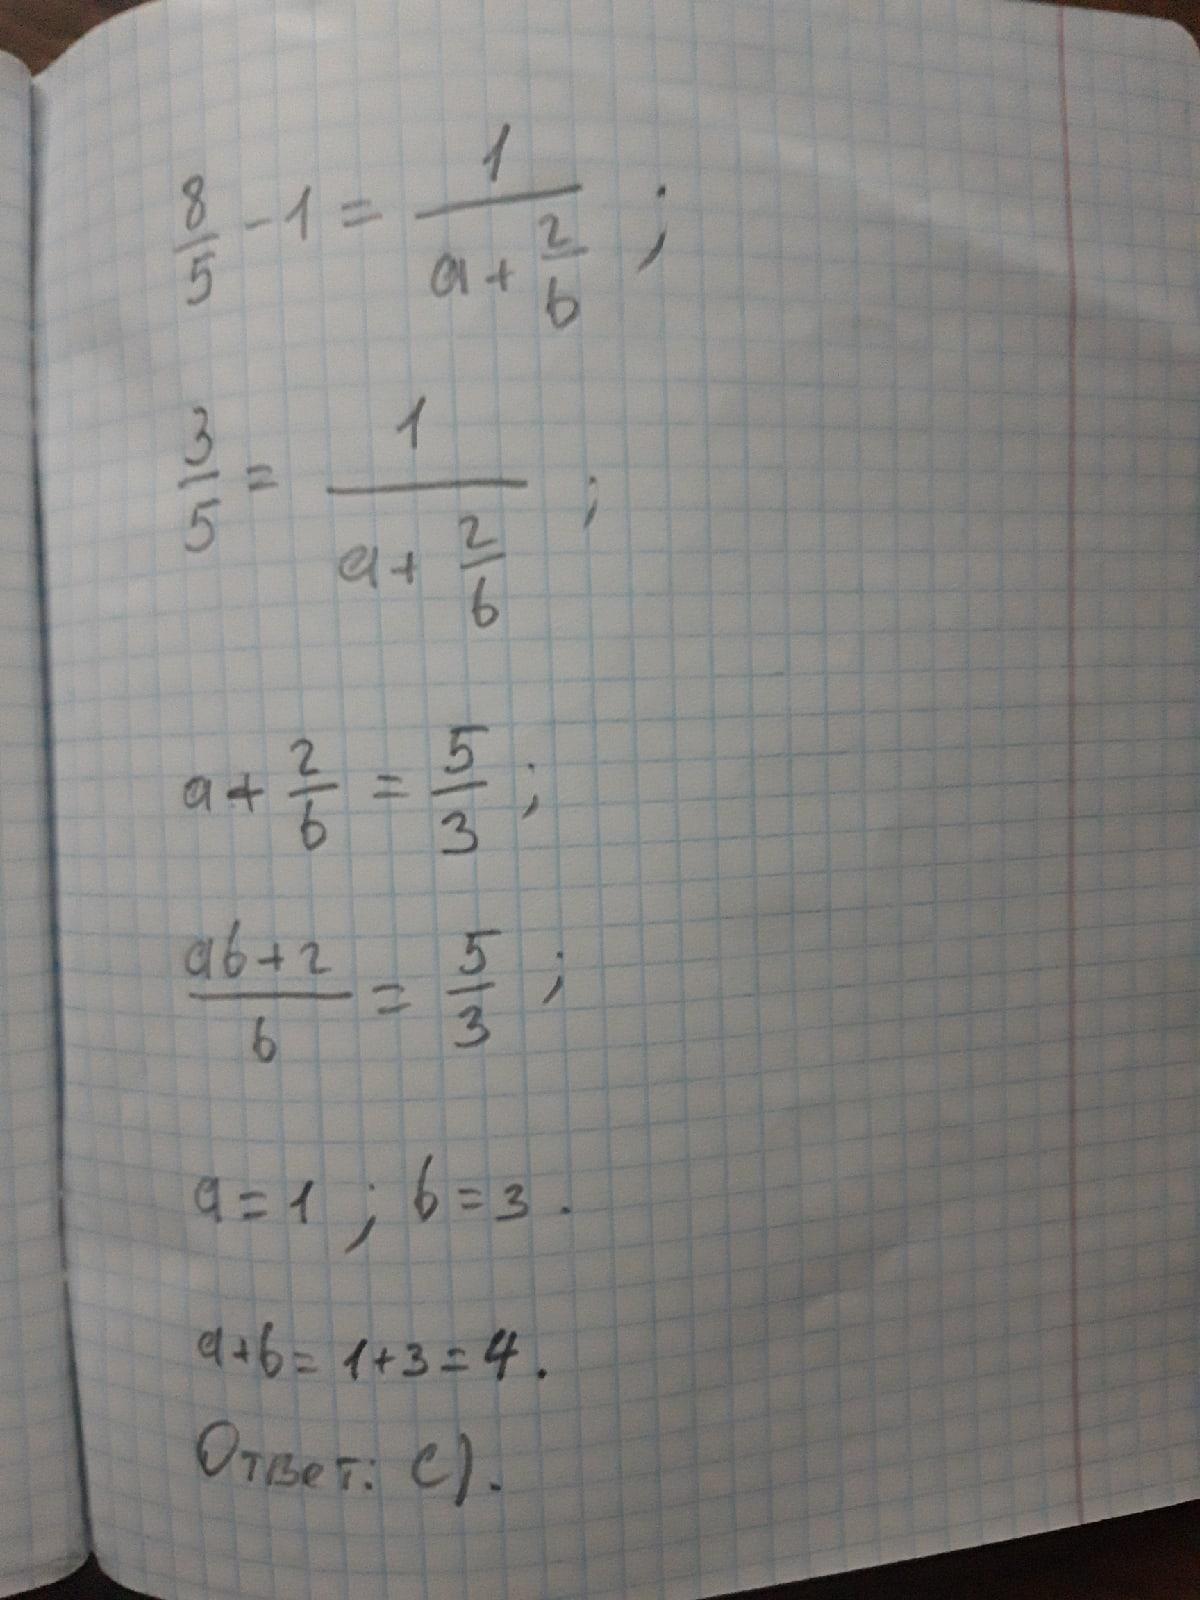 8/5 - 1 = 1/(a + 2/b) ;
3/5 = 1/(a + 2/b) ;
a + 2/b = 5/3 ;
(ab + 2)/b = 5/3 ;
a = 1 ; b = 3 .
a + b = 1 + 3 = 4 .
Ответ: C).